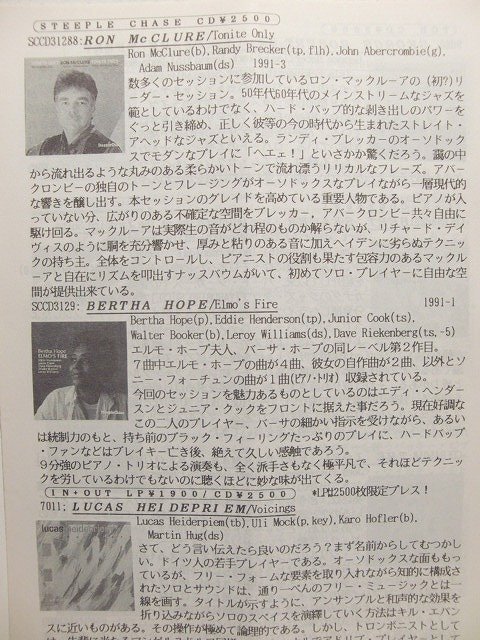 STEEPLE CHASE CD¥2500
SCCD31288:RON McCLURE/Tonite Only
Ron McClure(b),Randy Brecker(tp,flh),John Abercrombie(g),
Adam Nussbaum(ds) 1991-3
数多くのセッションに参加しているロン・マックルーアの(初?)リ
ーダー・セッション。50年代60年代のメインストリームなジャズを
範としているわけでなく、ハード・バップ的な剥き出しのパワーを
ぐっと引き締め、正しく彼等の今の時代から生まれたストレイト・
アヘッドなジャズといえる。ランディ・ブレッカーのオーソドック
スでモダンなプレイに「ヘエェ!」といささか驚くだろう。靄の中
から流れ出るような丸みのある柔らかいトーンで流れ漂うリリカルなフレーズ。アバ
ークロンビーの独自のトーンとフレージングがオーソドックスなプレイながら一層現代的
な響きを醸し出す。本セッションのグレイドを高めている重要人物である。ピアノが入
っていない分、広がりのある不確定な空間をブレッカー，アバークロンビー共々自由に
駆け回る。マックルーアは実際生の音がどれ程のものか解らないが、リチャード・デイ
ヴィスのように胴を充分響かせ、厚みと粘りのある音に加えヘイデンに劣らぬテクニッ
クの持ち主。全体をコントロールし、ピアニストの役割も果たす包容力のあるマックル
ーアと自在にリズムを叩出すナッスバウムがいて、初めてソロ・プレイヤーに自由な空
間が提供出来ている。
SCCD3129:BERTHA HOPE/Elmo's Fire 1991-1
Bertha Hope(p),Eddie Henderson(tp),Junior Cook(ts),
Walter Booker(b),Leroy Williams(ds),Dave Riekenberg(ts,-5)
エルモ・ホープ夫人、バーサ・ホープの同レーベル第２作目。
７曲中エルモ・ホープの曲が４曲、彼女の自作曲が２曲、以外とソ
ニー・フォーチュンの曲が１曲(ピアノ・トリオ)収録されている。
今回のセッションを魅力あるものとしているのはエディ・ヘンダー
スンとジュニア・クックをフロントに据えた事だろう。現在好調な
この二人のプレイヤー、バーサの細かい指示を受けながら、あるい
は統制力のもと、持ち前のブラック・フィーリングたっぷりのプレイに、ハードバップ
・ファンなどはブレイキー亡き後、絶えて久しい感触であろう。
９分強のピアノ・トリオによる演奏も、全く派手さもなく極平凡で、それほどテクニッ
クを労しているわけでもないのに聴くほどに妙な味が出てくる。
IN+OUT LP¥1900/CD¥2500 *LPは2500枚限定プレス！
7011:LUCAS HEIDEPRIEM/Voicings
Lucas Heiderpiem(tb),Uli Mock(p,key),Karo Hofler(b),
Martin Hug(ds)
さて、どう言い伝えたら良いのだろう？まず名前からしてむつかし
い。ドイツ人の若手プレイヤーである。オーソドックスな面ももっ
ているが、フリー・フォームな要素を取り入れながら知的に構成さ
れたソロとサウンドは、通り一ぺんのフリー・ミュージックとは一
線を画す。タイトルが示すように、アンサンブルと和声的な効果を
折り込みながらソロのスペイスを演繹していく方法はキル・エバン
スに近いものがある。その操作が極めて論理的である。しかし、トロンボニストとして